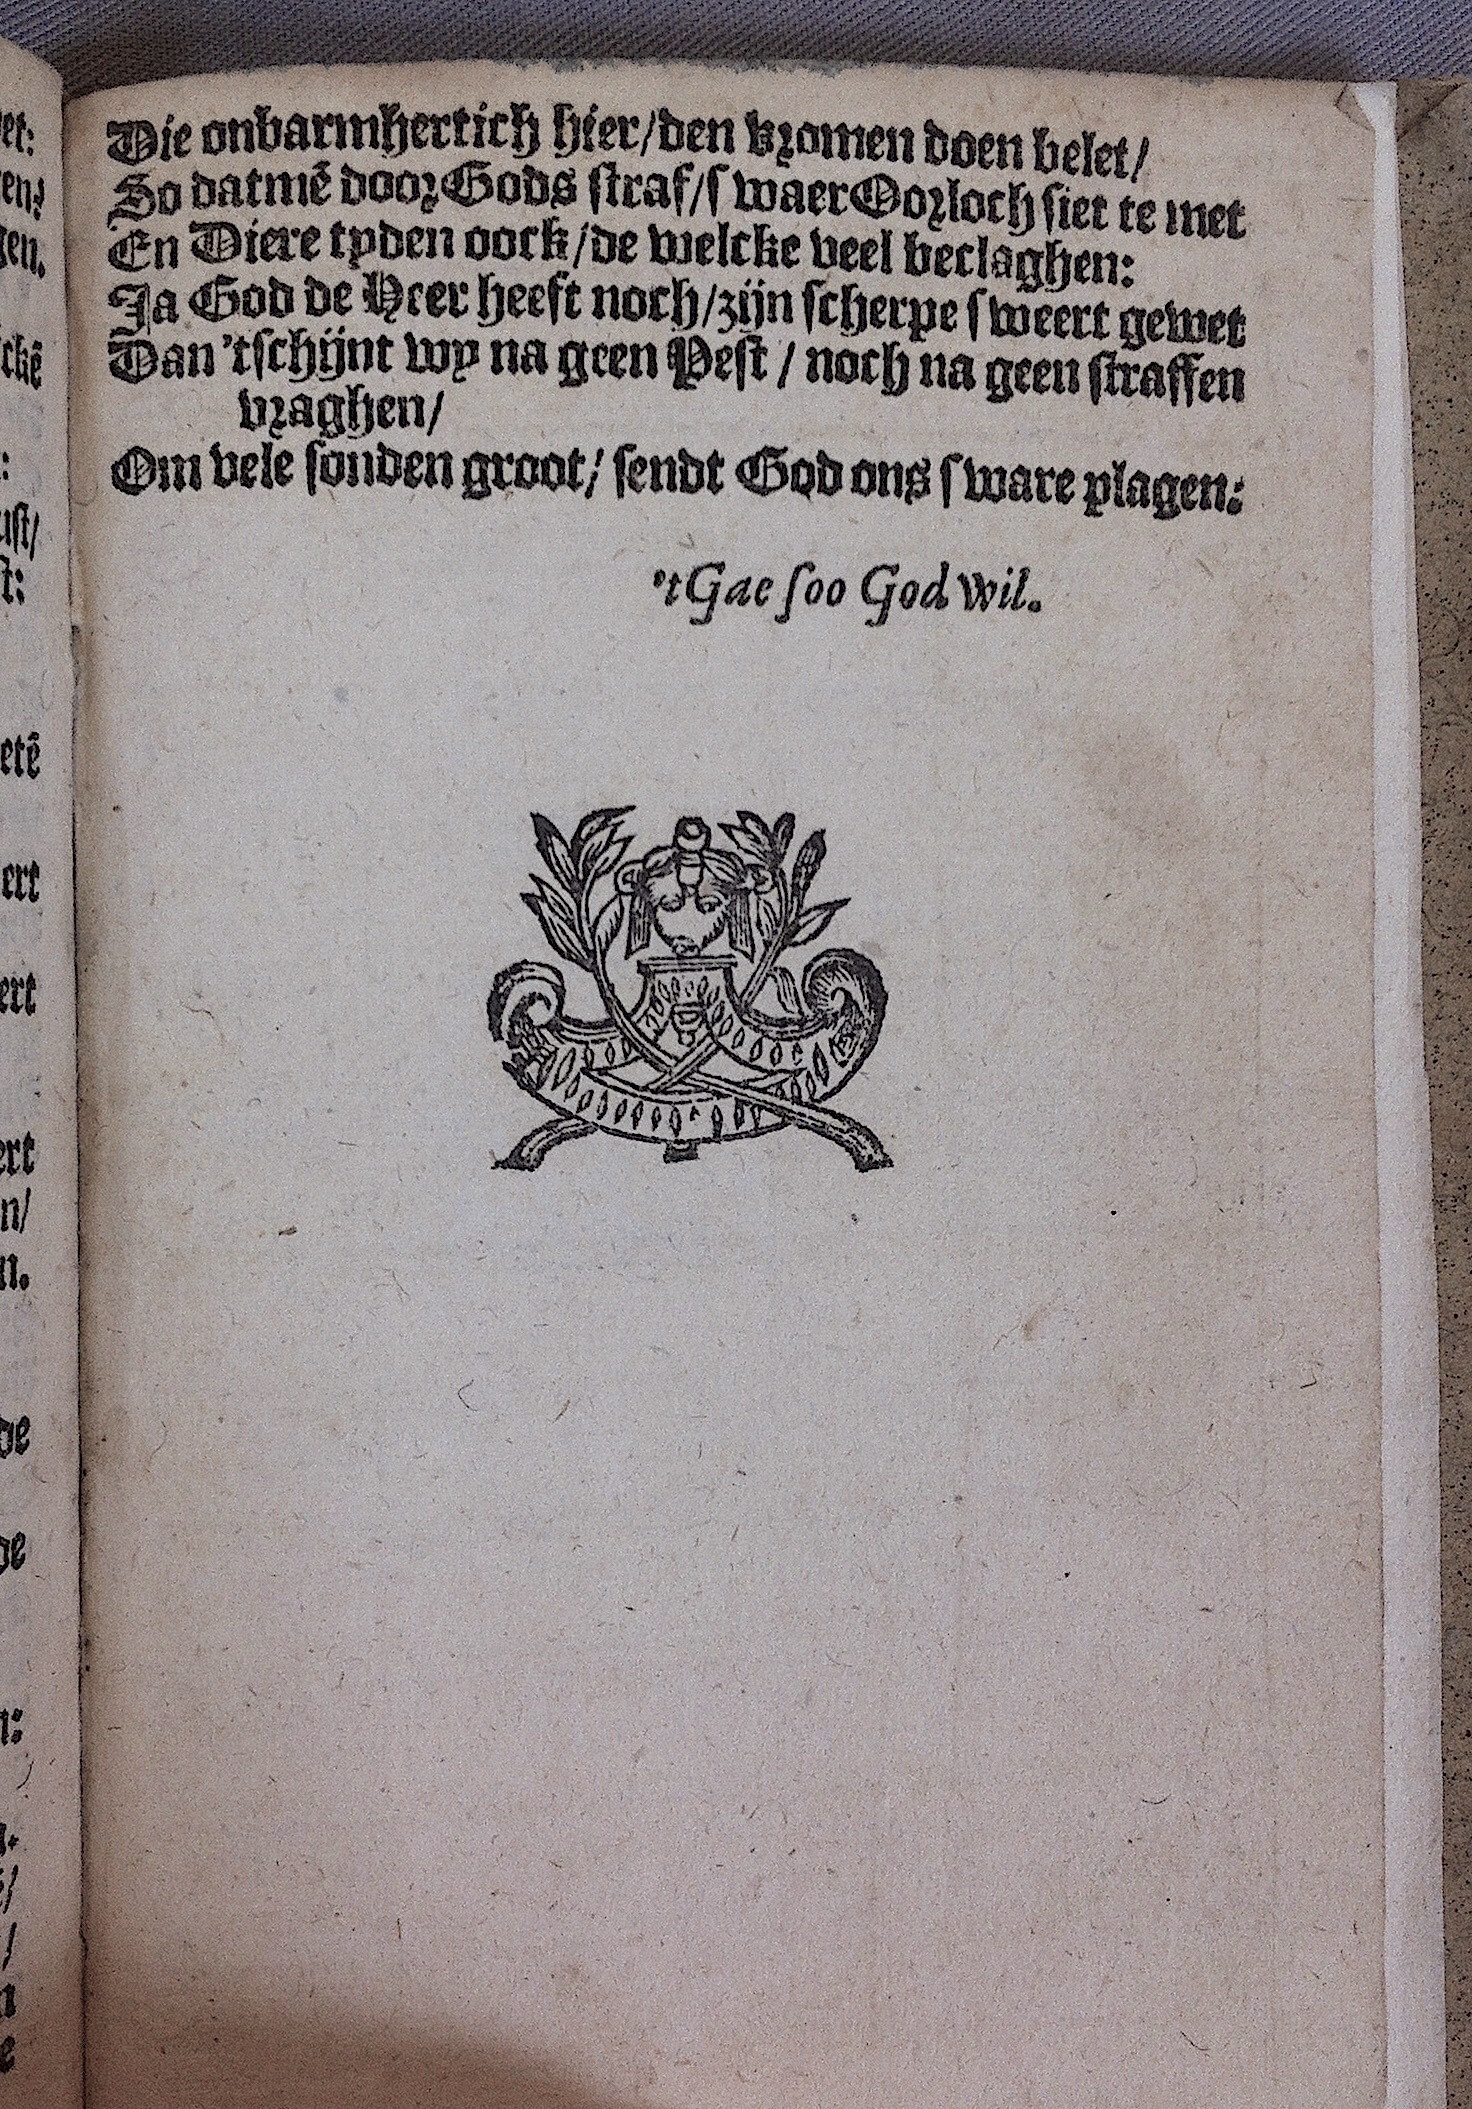 Die onbarmhertich hier/den vromen doen belet/
So datmē door Gods straf/swaer Oorloch siet te met
En Diere tyden oock/de welcke veel beclaghen:
Ja God de Heer heeft noch/zijn scherpe sweert gewet
Dan 'tschijnt wy na geen Pest / noch na geen straffen
vraghen/
Om vele sonden groot/ sendt God ons sware plagen:
't Gae soo God wil.